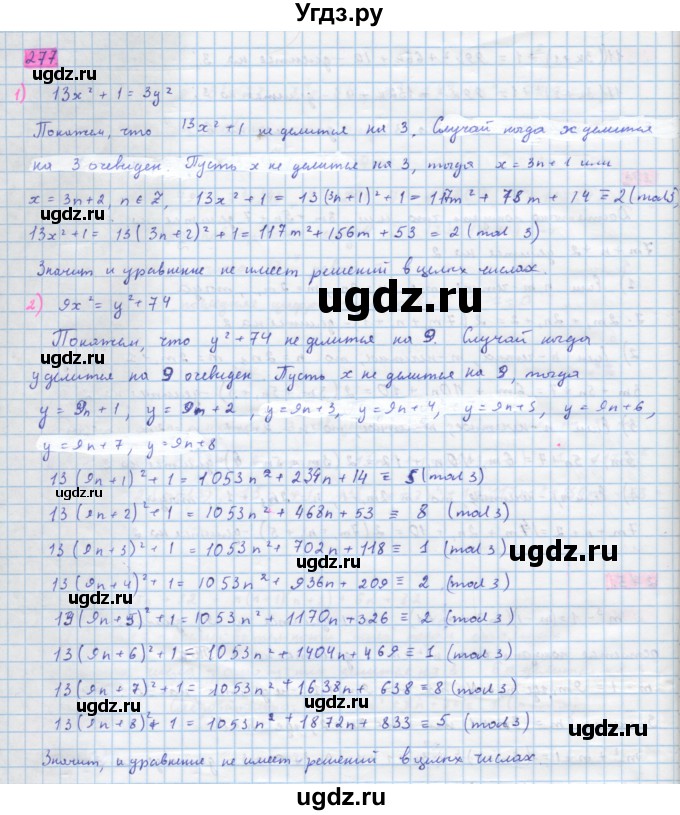 Угдз.ру
277
ugdz.ru
1) 13x² + 1 = 3y²
Покажем, что 13x² + 1 не делится на 3. Случай когда x делится
на 3 очевиден. Пусть x не делится на 3, тогда x = 3n + 1 или
x = 3n + 2, n ∈ Z, 13x² + 1 = 13(3n + 1)² + 1 = 117m² + 78m + 14 ≡ 2 (mod 3)
13x² + 1 = 13(3n + 2)² + 1 = 117m² + 156m + 53 = 2 (mod 3)
Значит и уравнение не имеет решений в целых числах.
ugdz.ru
2) 9x² = y² + 74
Покажем, что y² + 74 не делится на 9. Случай когда
ugdz.ru
y делится на 9 очевиден. Пусть x не делится на 9, тогда
y = 9n + 1, y = 9n + 2, y = 9n + 3, y = 9n + 4, y = 9n + 5, y = 9n + 6,
y = 9n + 7, y = 9n + 8
13(9n + 1)² + 1 = 1053n² + 234n + 14 ≡ 5 (mod 3)
ugdz.ru
13(9n + 2)² + 1 = 1053n² + 468n + 53 ≡ 8 (mod 3)
13(9n + 3)² + 1 = 1053n² + 702n + 118 ≡ 1 (mod 3)
ugdz.ru
13(9n + 4)² + 1 = 1053n² + 936n + 209 ≡ 2 (mod 3)
ugdz.ru
13(9n + 5)² + 1 = 1053n² + 1170n + 326 ≡ 2 (mod 3)
13(9n + 6)² + 1 = 1053n² + 1404n + 469 ≡ 1 (mod 3)
ugdz.ru
13(9n + 7)² + 1 = 1053n² + 1638n + 638 ≡ 8 (mod 3)
ugdz.ru
13(9n + 8)² + 1 = 1053n² + 1872n + 833 = 5 (mod 3)
Значит, и уравнение не имеет решений в целых числах.
ugdz.ru
ugdz.ru